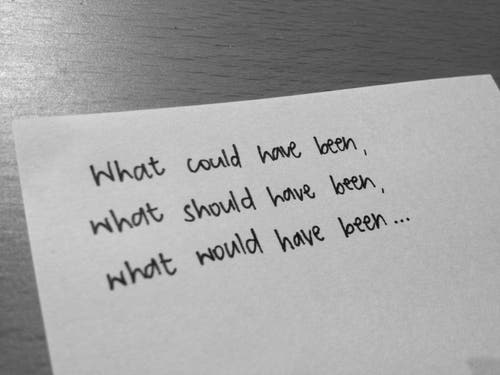 What could have been,
what should have been,
what would have been...